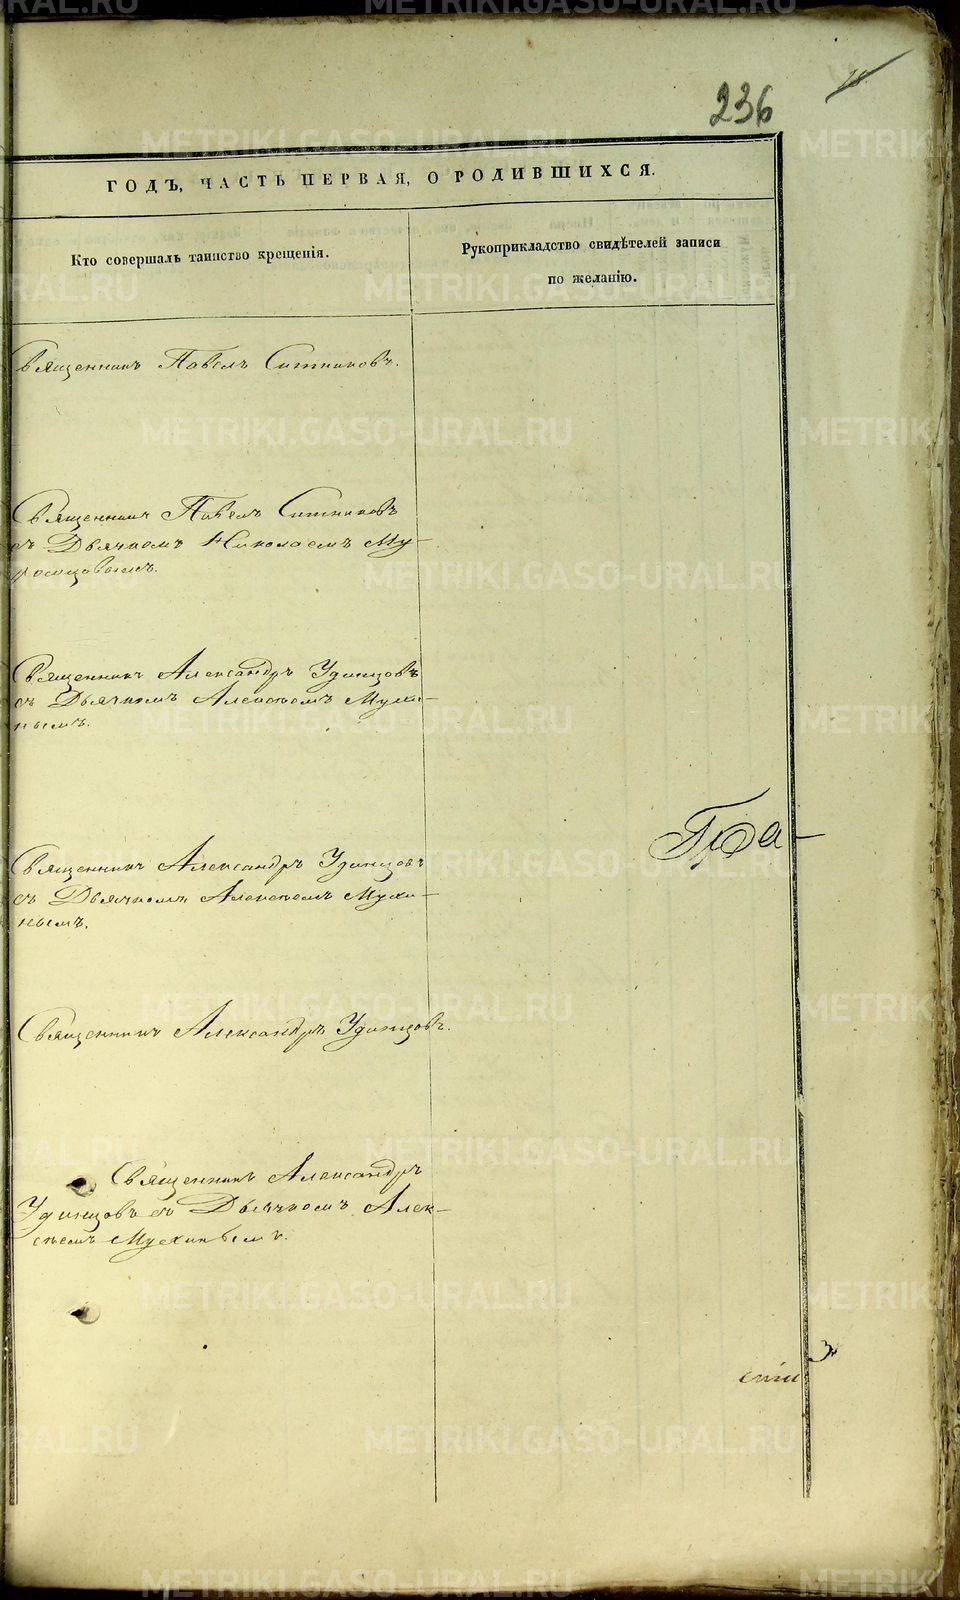 236
ГОДЪ, ЧАСТЬ ПЕРВАЯ, О РОДИВШИХСЯ.
Кто совершалъ таинство крещенія.
Рукоприкладство свидѣтелей записи
по желанію.
Священникъ Павелъ Ситниковъ.
Священникъ Павелъ Ситниковъ
съ Дьячкомъ Николаемъ Му-
ромцовымъ.
Священникъ Александръ Удинцовъ
съ Дьячкомъ Алексѣемъ Мухи-
нымъ.
Священникъ Александръ Удинцовъ
съ Дьячкомъ Алексѣемъ Мухи-
нымъ.
Священникъ Александръ Удинцовъ.
Священникъ Александръ
Удинцовъ съ Дьячкомъ Алек-
сѣемъ Мухинымъ.
METRIKI.GASO-URAL.RU